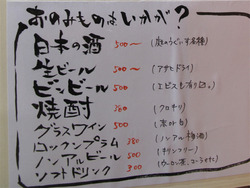 おのみものはいかが?
日本の酒 500~ (庭のうぐいす各種)
生ビール 500~ (アサヒドライ)
ビンビール 500 (エビスも有り〼。)
焼酎 380 (クロキリ)
グラスワイン 500 (赤or白)
ロックンプラム 380 (ノンアル梅酒)
ノンアルビール 500 (キリンフリー)
ソフトドリンク 300 (ウーロン茶、コーラなど)